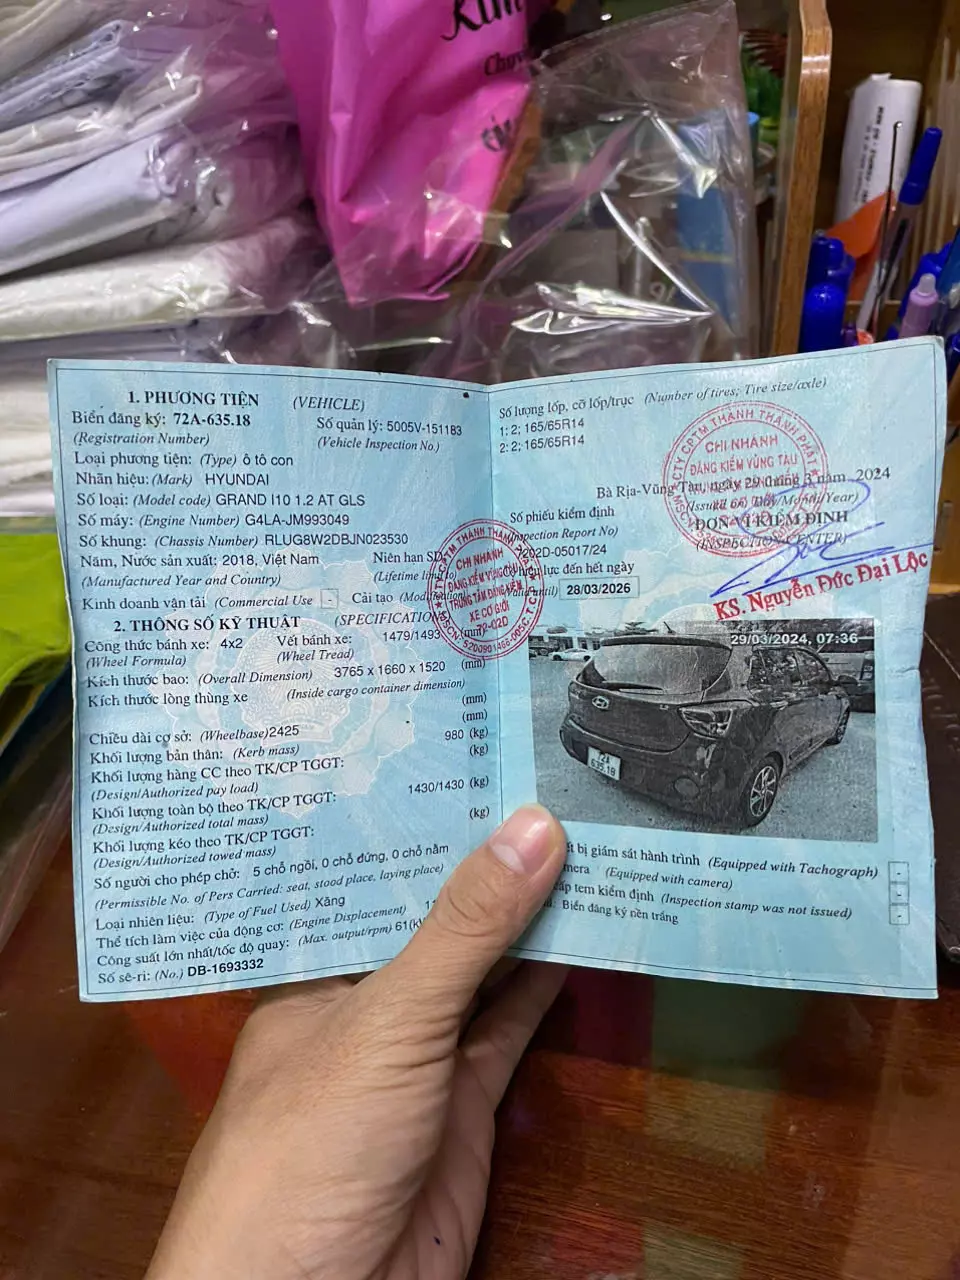 Chuy
1. PHƯƠNG TIỆN (VEHICLE)
Biển đăng ký: 72A-635.18 Số quản lý: 5005V-151183
(Registration Number) (Vehicle Inspection No.)
Loại phương tiện: (Type) ô tô con
Nhãn hiệu: (Mark) HYUNDAI
Số loại: (Model code) GRAND I10 1.2 AT GLS
Số máy: (Engine Number) G4LA-JM993049
Số khung: (Chassis Number) RLUG8W2DBJN023530
Năm, Nước sản xuất: 2018, Việt Nam Niên hạn SD:
(Manufactured Year and Country) (Lifetime limit to)
Kinh doanh vận tải (Commercial Use) - Cải tạo (Modification)
2. THÔNG SỐ KỸ THUẬT (SPECIFICATION)
Công thức bánh xe: 4x2 Vết bánh xe: 1479/1493 (mm)
(Wheel Formula) (Wheel Tread)
Kích thước bao: (Overall Dimension) 3765 x 1660 x 1520 (mm)
Kích thước lòng thùng xe (Inside cargo container dimension)
(mm)
Chiều dài cơ sở: (Wheelbase)2425 (mm)
Khối lượng bản thân: (Kerb mass) 980 (kg)
Khối lượng hàng CC theo TK/CP TGGT: (kg)
(Design/Authorized pay load)
Khối lượng toàn bộ theo TK/CP TGGT: 1430/1430 (kg)
(Design/Authorized total mass)
Khối lượng kéo theo TK/CP TGGT: (kg)
(Design/Authorized towed mass)
Số người cho phép chở: 5 chỗ ngồi, 0 chỗ đứng, 0 chỗ nằm
(Permissible No. of Pers Carried: seat, stood place, laying place)
Loại nhiên liệu: (Type of Fuel Used) Xăng
Thể tích làm việc của động cơ: (Engine Displacement) 1
Công suất lớn nhất/tốc độ quay: (Max. output/rpm) 61(k
Số sê-ri: (No.) DB-1693332
Số lượng lốp, cỡ lốp/trục (Number of tires; Tire size/axle)
1; 2; 165/65R14
2: 2; 165/65R14
Bà Rịa-Vũng Tàu, ngày 29 tháng 3 năm 2024
(Issued on: Day/Month/Year)
Số phiếu kiểm định ĐƠN VỊ KIỂM ĐỊNH
(Inspection Report No) (INSPECTION CENTER)
7202D-05017/24
Có hiệu lực đến hết ngày
(Valid until) 28/03/2026
KS. Nguyễn Đức Đại Lộc
CHI NHÁNH
ĐĂNG KIỂM VŨNG TÀU
CHI NHÁNH
ĐĂNG KIỂM VŨNG TÀU
TRUNG TÂM ĐĂNG KIỂM
XE CƠ GIỚI
72-02D
29/03/2024, 07:36
72A
635.18
ết bị giám sát hành trình (Equipped with Tachograph) -
mera (Equipped with camera) -
cấp tem kiểm định (Inspection stamp was not issued) -
Biển đăng ký nền trắng